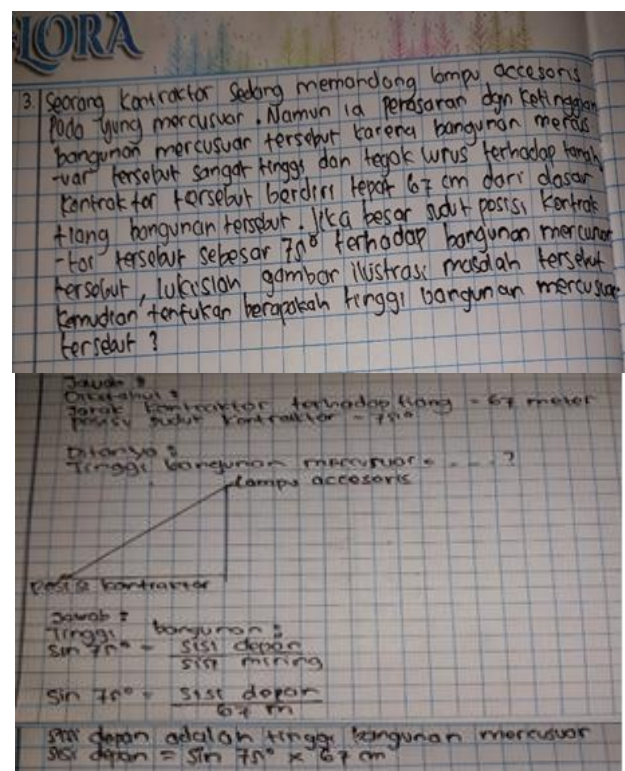 LORA
3. Seorang kontraktor sedang memandang lampu accesoris
Pada ujung mercusuar. Namun ia perasaran dgn ketinggian
bangunan mercusuar tersebut karena bangunan mercus
-uar tersebut sangat tinggi dan tegak lurus terhadap tanah
kontraktor tersebut berdiri tepat 67 cm dari dasar
tiang bangunan tersebut. Jika besar sudut posisi kontrak
-tor tersebut sebesar 75° terhadap bangunan mercusuar
tersebut, lukislah gambar ilustrasi masalah tersebut
kemudian tentukan berapakah tinggi bangunan mercusuar
tersebut ?
Jawab :
Diketahui :
Jarak kontraktor terhadap tiang = 67 meter
posisi sudut kontraktor = 75°
Ditanya :
Tinggi bangunan mercusuar = .... ?
lampu accesoris
posisi kontraktor
Jawab :
Tinggi bangunan :
sin 75° = sisi depan
sisi miring
sin 75° = sisi depan
67 m
sisi depan adalah tinggi bangunan mercusuar
sisi depan = sin 75° x 67 cm